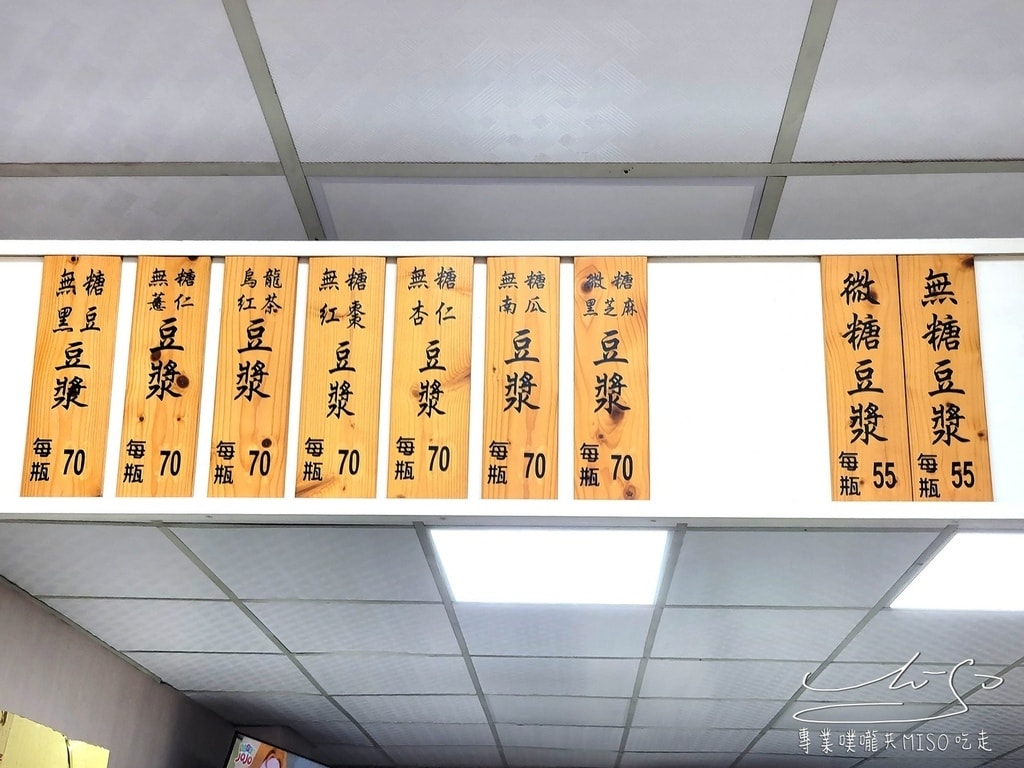 無糖
黑豆
豆漿
每瓶 70
無糖
薏仁
豆漿
每瓶 70
烏龍
紅茶
豆漿
每瓶 70
無糖
紅棗
豆漿
每瓶 70
無糖
杏仁
豆漿
每瓶 70
無糖
南瓜
豆漿
每瓶 70
微糖
黑芝麻
豆漿
每瓶 70
微糖豆漿
每瓶 55
無糖豆漿
每瓶 55
JOJO
Miso
專業噗嚨共MISO吃走